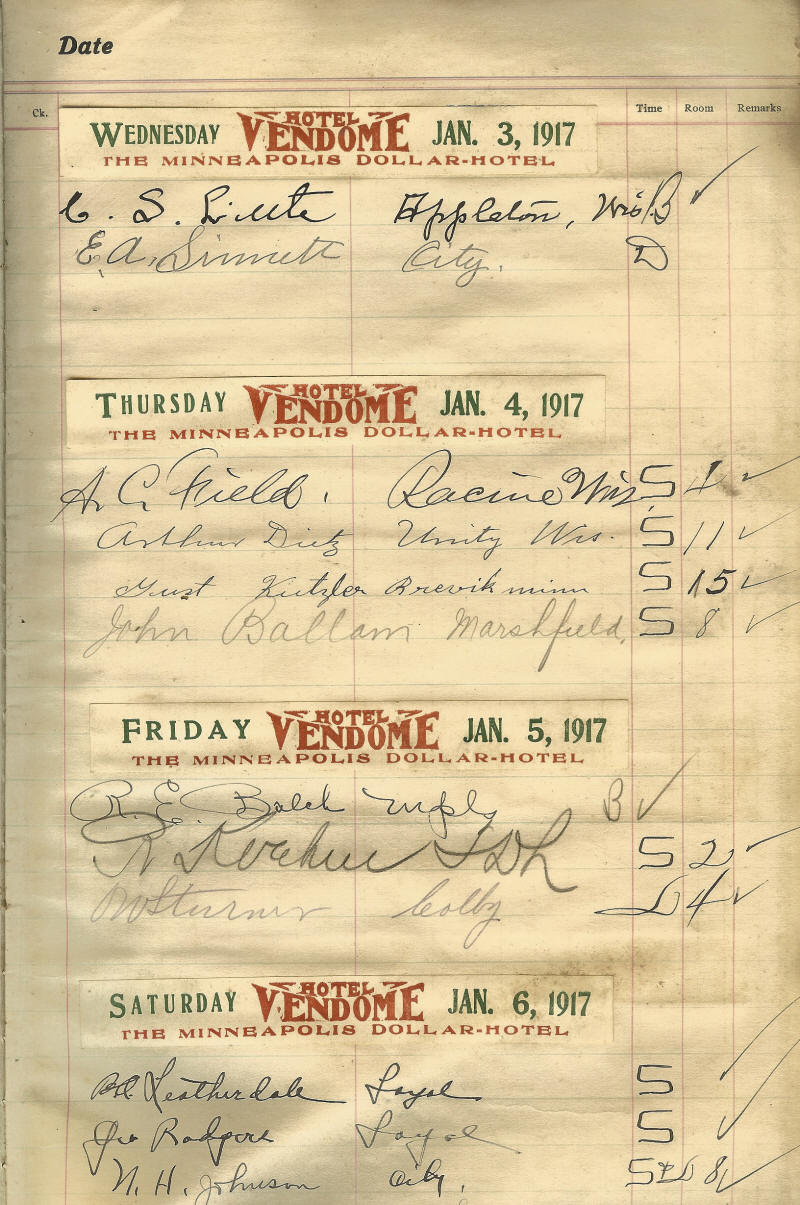 Date
Ck. Time Room Remarks
WEDNESDAY HOTEL VENDOME JAN. 3, 1917
THE MINNEAPOLIS DOLLAR-HOTEL
C. S. Appleton, Wis B ✓
E. A. Sinnett City. D
THURSDAY HOTEL VENDOME JAN. 4, 1917
THE MINNEAPOLIS DOLLAR-HOTEL
A. C. Field. Racine Wis. S 1 ✓
Arthur Dietz Unity Wis. S 11 ✓
Gust Brevik minn S 15 ✓
John Ballam Marshfield. S 8 ✓
FRIDAY HOTEL VENDOME JAN. 5, 1917
THE MINNEAPOLIS DOLLAR-HOTEL
R. E. Balch Mpls B ✓
S 2 ✓
Colby D 4 ✓
SATURDAY HOTEL VENDOME JAN. 6, 1917
THE MINNEAPOLIS DOLLAR-HOTEL
Leatherdale Loyal S ✓
Geo Rodgers Loyal S ✓
N. H. Johnson City. S 8 ✓